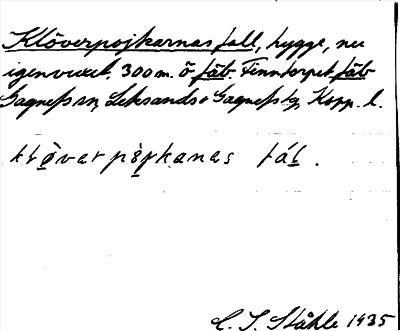 Klöverpojkarnas fall, hygge, nu
igenvuxet, 300 m. ö fäb. Finntorpet, fäb
Gagnefs sn, Leksands o Gagnefs tg, Kopp. l.
klǫ̀var pǫ̀jkanas fáḷ.
C. I. Ståhle 1935